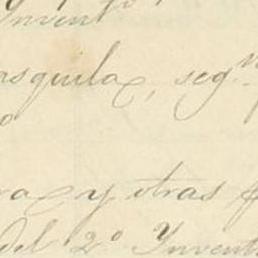 Inven
asquila, seg.n
o
ra y otras
del 2.o Invent